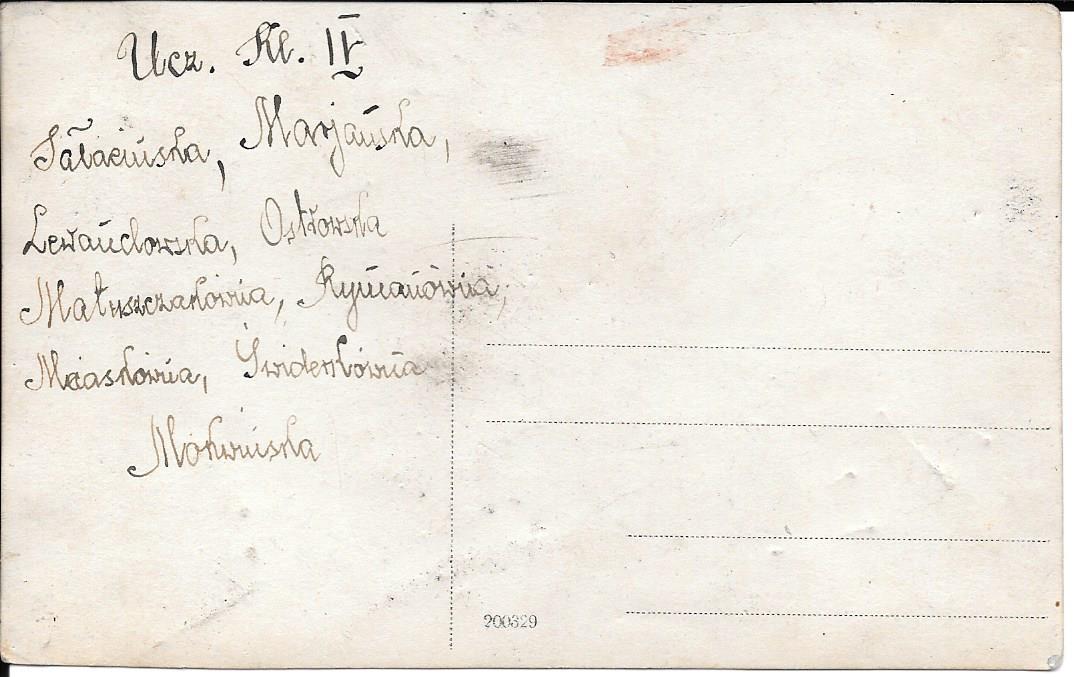 Ucz. Kl. IV
Marjańska,
Lewandowska, Ostrowska
Matuszczakówna, Rymanówna,
Maćaskówna, Świderkówna
Mokwińska
200329